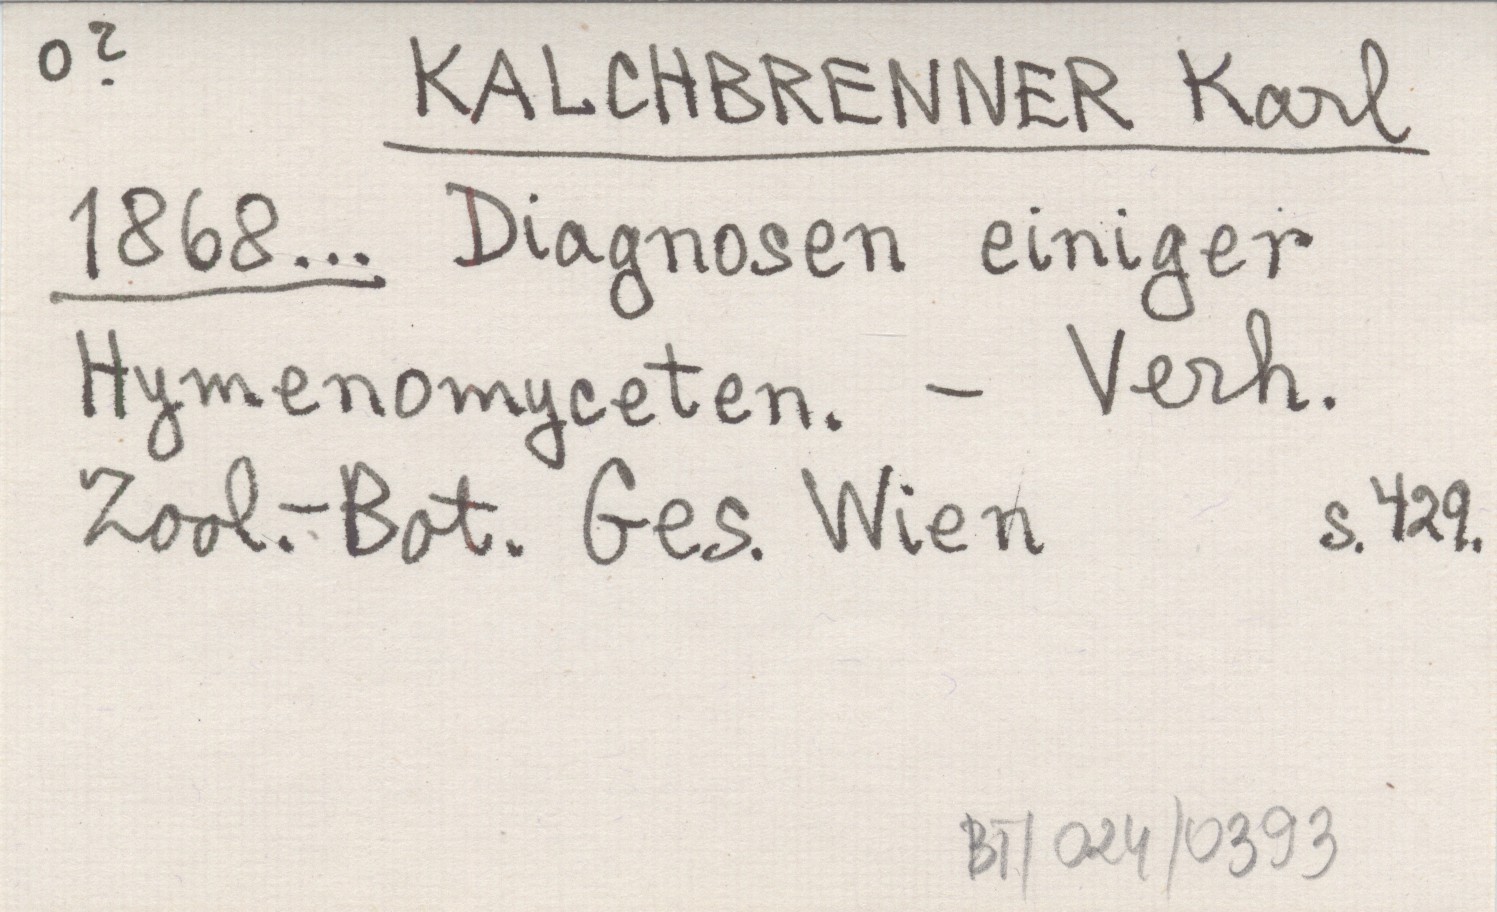 o?
KALCHBRENNER Karl
1868... Diagnosen einiger
Hymenomyceten. - Verh.
Zool.-Bot. Ges. Wien s. 429.
BT/024/0393